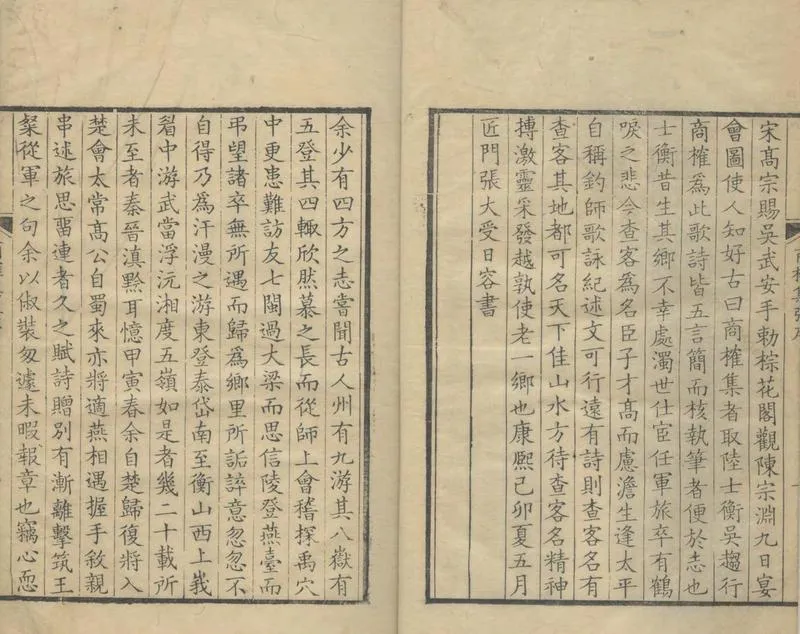 宋高宗賜吳武安手勅棕花閣觀陳宗淵九日宴
會圖使人知好古曰商榷集者取陸士衡吳趨行
商榷爲此歌詩皆五言簡而核執筆者便於志也
士衡昔生其鄉不幸處濁世仕宦任軍旅卒有鶴
唳之悲今查客爲名臣子才高而慮澹生逢太平
自稱釣師歌詠紀述文可行遠有詩則查客名有
查客其地都可名天下佳山水方待查客名精神
搏激靈采發越孰使老一鄉也康熙己卯夏五月
匠門張大受日容書
余少有四方之志嘗聞古人州有九游其八嶽有
五登其四輒欣然慕之長而從師上會稽探禹穴
中更患難訪友七閩過大梁而思信陵登燕臺而
弔望諸卒無所遇而歸爲鄉里所詬誶意忽忽不
自得乃爲汗漫之游東登泰岱南至衡山西上峩
眉中游武當浮沅湘度五嶺如是者幾二十載所
未至者秦晉滇黔耳憶甲寅春余自楚歸復將入
楚會太常高公自蜀來亦將適燕相遇握手敘親
串述旅思畱連者久之賦詩贈別有漸離擊筑王
粲從軍之句余以俶裝匆遽未暇報章也竊心恧